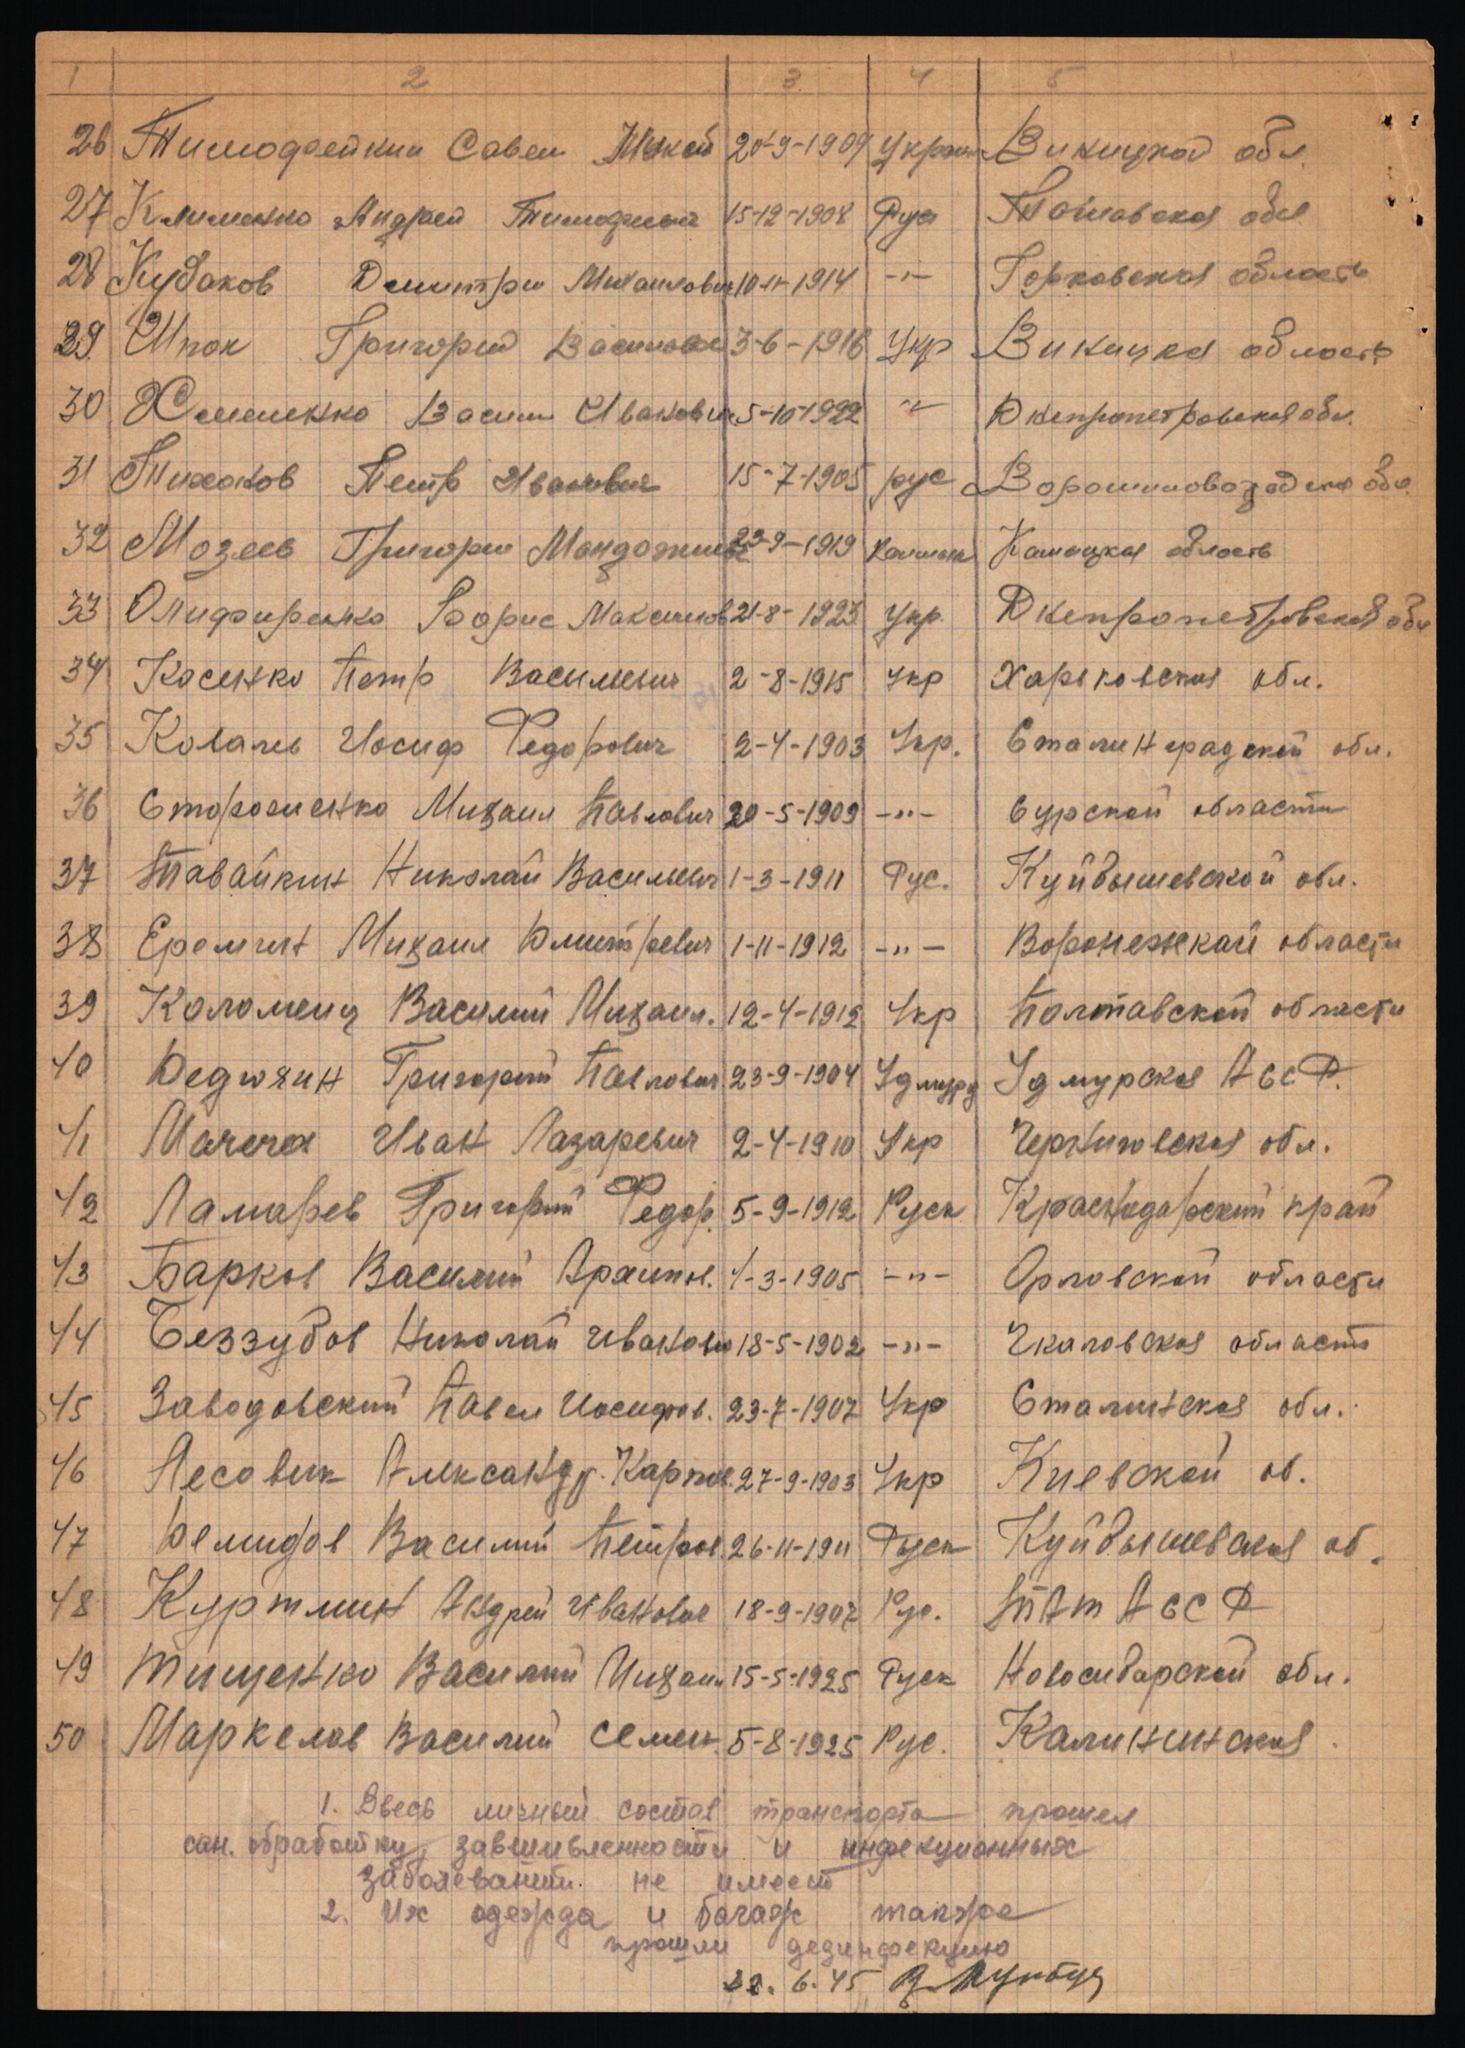 1 2 3 4 5
26 Тимофейкин Савел 20-9-1909 Украин Виницкой обл.
27 Клименко Андрей Тимофеевич 15-12-1908 Рус обл
28 Кубаков Демитри Михаилович 10-11-1914 -"- Горковская область
29 Шпак Григорий Василович 3-6-1916 Укр Виницкая область
30 Хоменко Васили Иванович 5-10-1922 -"- Днепропетровская обл.
31 Тиханов Петр Иванович 15-7-1905 рус Ворошиловоградская обл
32 Мозеев Григори 23-9-1919 Калмык Калмыцкая область
33 Олифиренко Борис Максимов 21-8-1923 Укр. Днепропетровской обл
34 Косенко Петр Васильевич 2-8-1915 Укр Харьковская обл.
35 Коваль Иосиф Федорович 2-4-1903 Укр. Сталинградской обл.
36 Стороженко Михаил Павлович 20-5-1909 -"- Курской области
37 Тавайкин Николай Василевич 1-3-1911 Рус. Куйбышевской обл.
38 Еремин Михаил Дмитревич 1-11-1912 -"- Воронежкай области
39 Коломеец Василий Михаил. 12-4-1912 Укр Полтавской области
40 Дедюхин Григорий Павлович 23-9-1904 Удмурд Удмурская АССР.
41 Иван Лазаревич 2-4-1910 Укр Черниговская обл.
42 Ламарев Григорий Федор. 5-9-1912 Руск Краснодарский край
43 Барков Василий Архипов. 1-3-1905 -"- Орловской области
44 Беззубов Николай Иванович 18-5-1902 -"- Чкаловская область
45 Заводовский Павел Иосифов. 23-7-1907 Укр Сталинская обл.
46 Лесовик Александр. Карпов. 27-9-1903 Укр Киевской об.
47 Демидов Василий Петров. 26-11-1911 Руск Куйбышевская об.
48 Куртлин Андрей Иванович 18-9-1907 Рус. Тат АССР
49 Тищенко Василий Михаил 15-5-1925 Руск Новосибарской обл.
50 Маркелов Василий Семен. 5-8-1925 Рус. Калининская
1. Ввесь личный состав транспорта прошел
сан. обработку, завшивленности и инфекционных
заболеваний не имеет
2. Их одежда и багаж также
прошли дезинфекцию
22. 6. 45